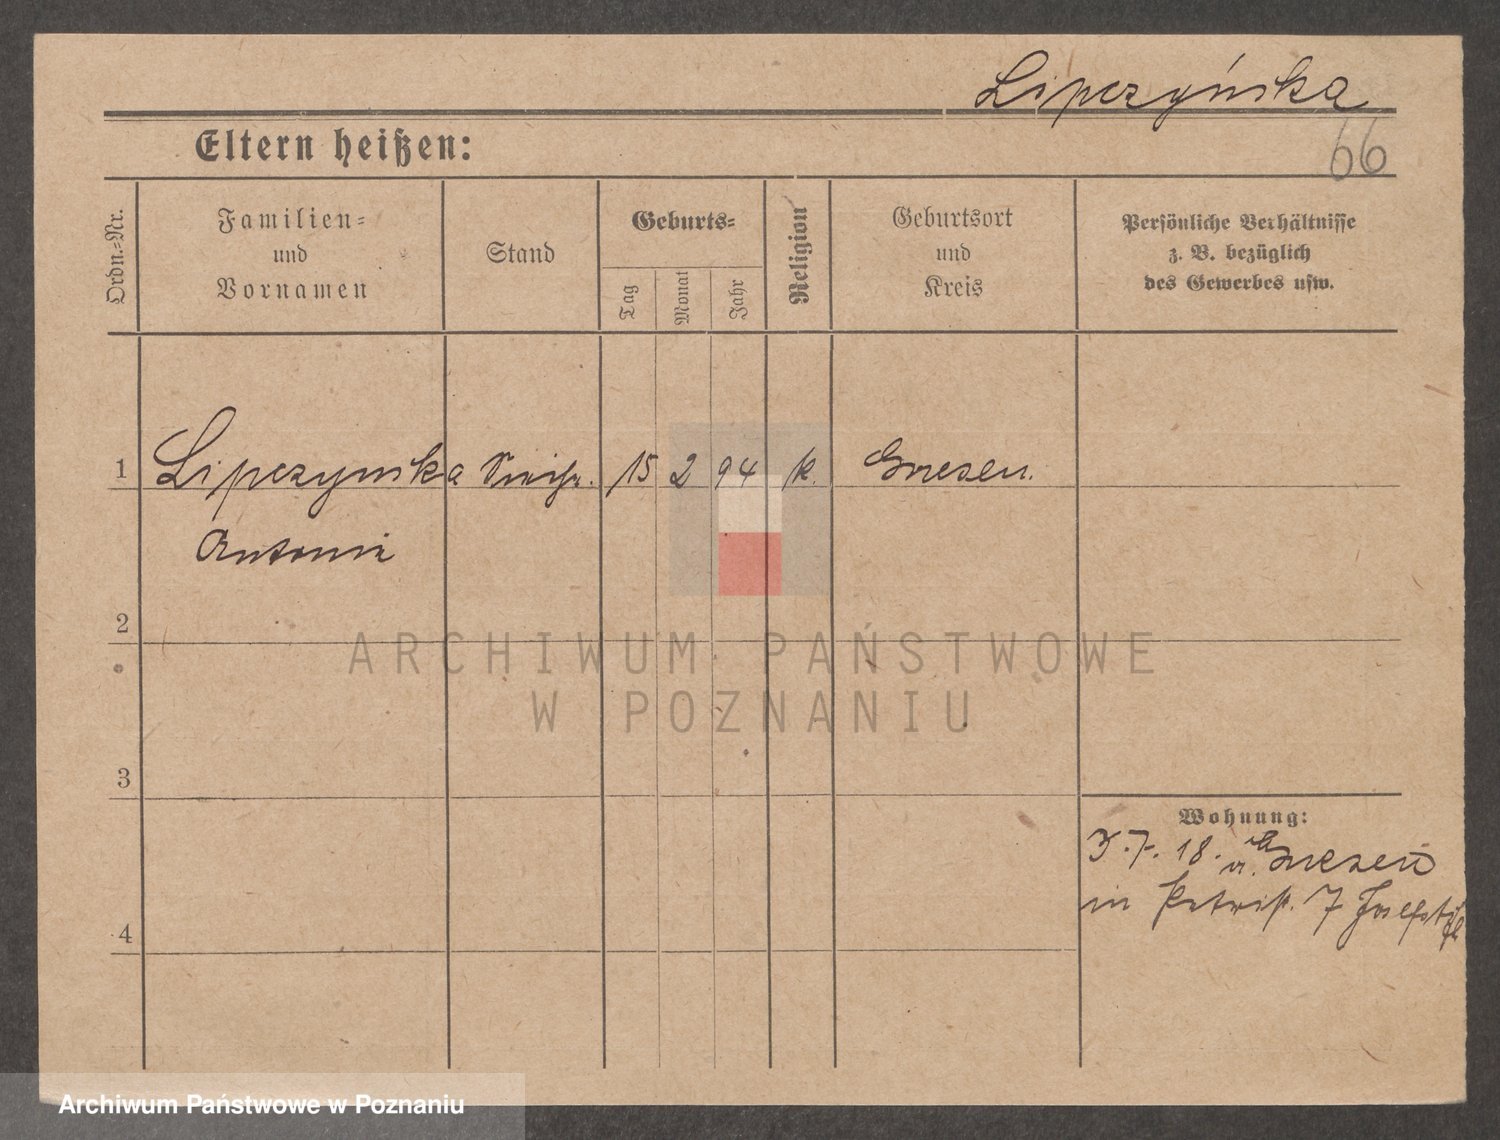 Lipczyńska
66
Eltern heißen:
Ordn.=Nr.
Familien=
und
Vornamen
Stand
Geburts=
Tag
Monat
Jahr
Religion
Geburtsort
und
Kreis
Persönliche Verhältnisse
z. B. bezüglich
des Gewerbes usw.
1 Lipczynska 15 2 94 k. Gnesen.
Antonie
2
ARCHIWUM PAŃSTWOWE
W POZNANIU
3
Wohnung:
7. 18. v. Gnesen
in Petrist. 7
4
Archiwum Państwowe w Poznaniu